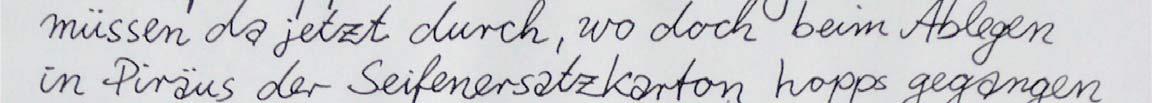 müssen da jetzt durch, wo doch beim Ablegen
in Piräus der Seifenersatzkarton hopps gegangen